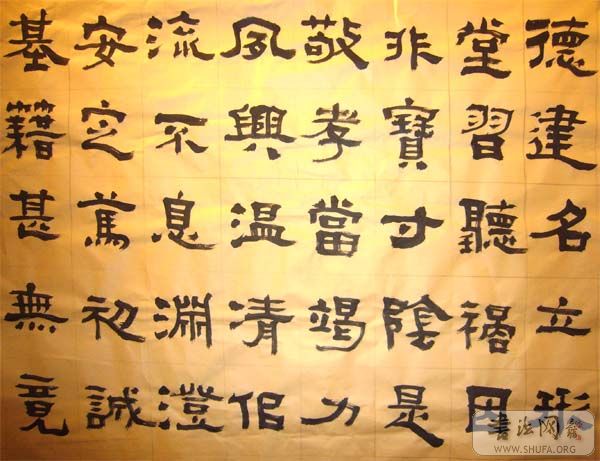 德建名立形
堂習聽禍因
非寶寸陰是
敬孝當竭力
夙興温凊佀
流不息淵澄
安定篤初誠
基籍甚無竟
書法网
WWW.SHUFA.ORG